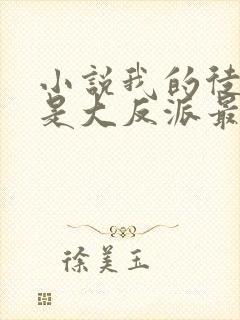 小説我的徒
是大反派最
徐美玉